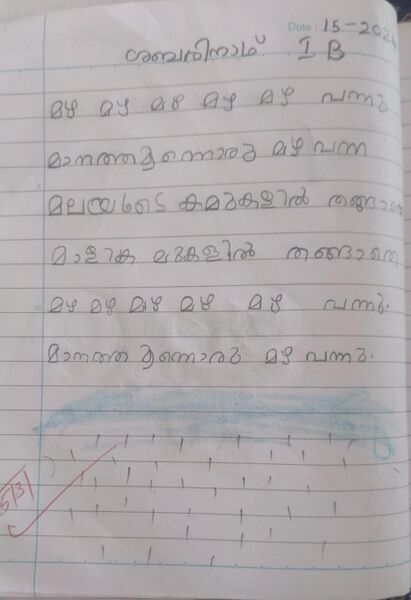 Date: 15-2024
ശബരിനാഥ് I B
മഴ മഴ മഴ മഴ മഴ വന്നു
മാനത്തുന്നൊരു മഴ വന്ന
മലയുടെ കമുകളിൽ തങ്ങാതെ
മാളിക മുകളിൽ തങ്ങാതെ
മഴ മഴ മഴ മഴ മഴ വന്നു.
മാനത്തുന്നൊരു മഴ വന്നു.
5/3/